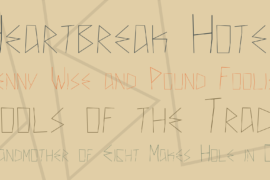 Heartbreak Hote
enny Wise and Pound Foolis
ools of the Trad
andmother of Eight Makes Hole in